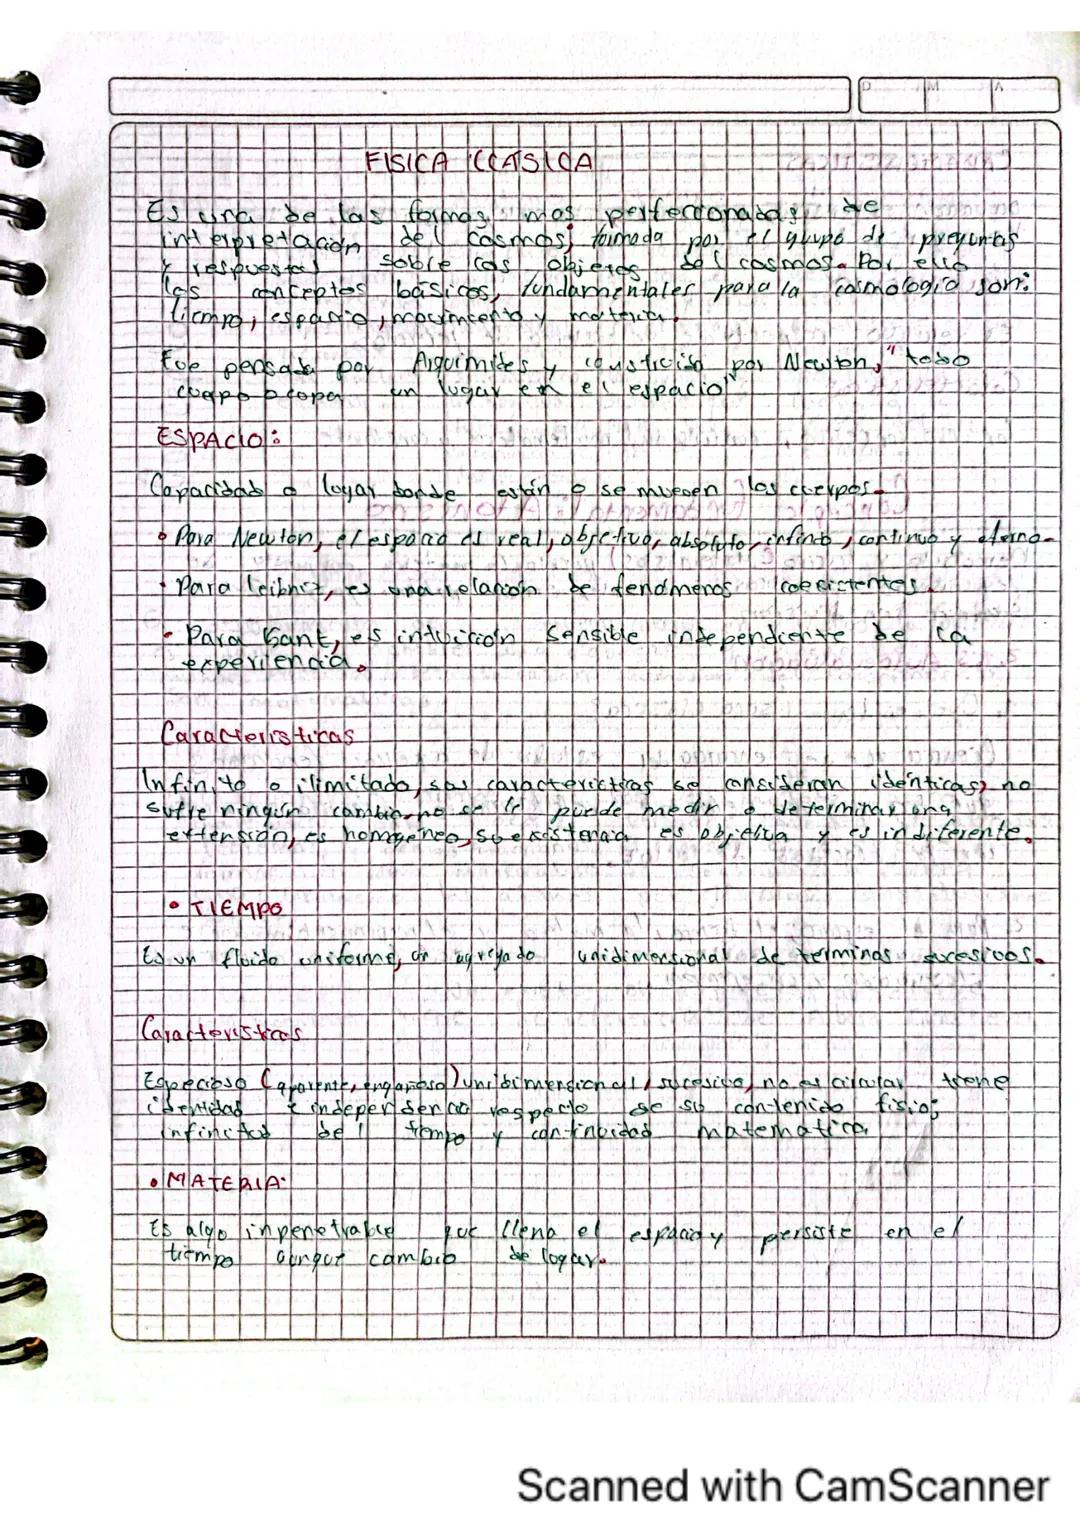 D M A
FISICA CLASICA
Es una de las formas mas perfeccionadas de
interpretación del cosmos, formada por el grupo de preguntas
y respuestas sobre los objetos del cosmos. Por ello
los conceptos básicos, fundamentales para la cosmología son:
tiempo, espacio, movimiento y materia.
Fue pensada por Arquimides y por Newton, "todo
cuerpo ocupa un lugar en el espacio"
ESPACIO:
Capacidad o lugar donde están o se mueven los cuerpos.
• Para Newton, el espacio es real, objetivo, absoluto, infinito, continuo y eterno.
• Para leibniz, es una relación de fenómenos coexistentes.
• Para Kant, es intuición sensible independiente de la
experiencia.
Características
Infinito o ilimitado, sus características se consideran idénticas, no
sufre ningún cambio, no se le puede medir o determinar una
extensión, es homogéneo, su existencia es objetiva y es indiferente.
• TIEMPO
Es un fluido uniforme, un agregado unidimensional de terminos sucesivos.
Características
Especioso (aparente, engañoso) unidimensional, sucesivo, no es circular, tiene
identidad e independencia respecto de su contenido físico;
infinitud del tiempo y continuidad matemática
• MATERIA:
Es algo inpenetrable que llena el espacio y persiste en el
tiempo aunque cambie de lugar.
Scanned with CamScanner